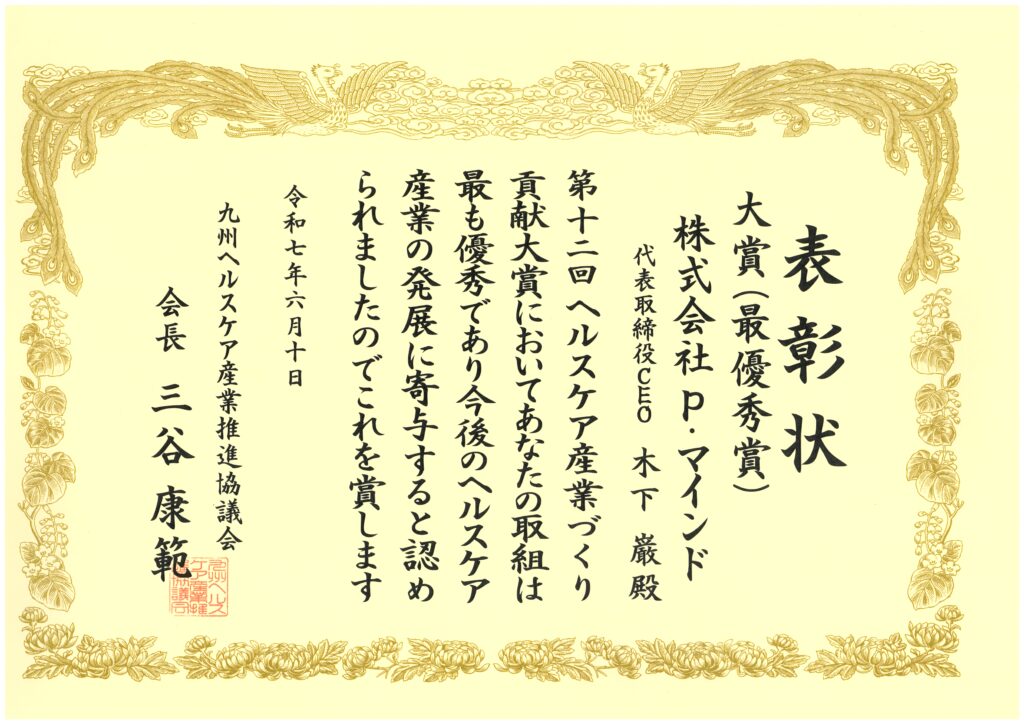 表彰状
大賞(最優秀賞)
株式会社 p・マインド
代表取締役CEO 木下 巌殿
第十二回ヘルスケア産業づくり
貢献大賞においてあなたの取組は
最も優秀であり今後のヘルスケア
産業の発展に寄与すると認め
られましたのでこれを賞します
令和七年六月十日
九州ヘルスケア産業推進協議会
会長 三谷 康範
九州ヘルス
ケア産業推
進協議会